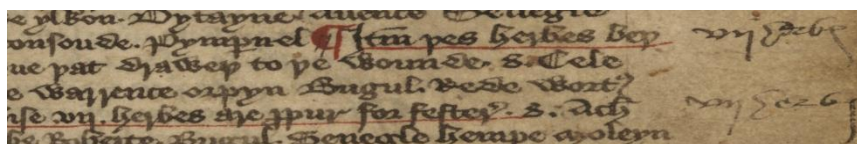 e ylkon. Dytayne. auence Senegle
onsoude. Pympnel ¶ Itm þes herbes beþ vij herb
ue þat draweþ to þe wounde. s. Cele
e warrence orpyn Bugul. Rede wort
ise vij. herbes are ppur for fester. s. Ach vij herb
be Roberte. Bugul. Senegle hempe moleyn